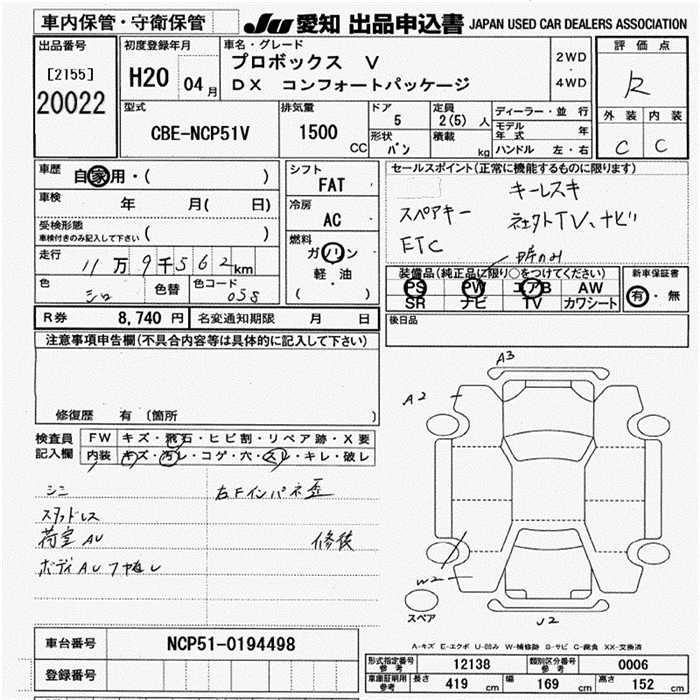 車内保管・守衛保管
JU 愛知 出品申込書 JAPAN USED CAR DEALERS ASSOCIATION
出品番号
[2155]
20022
初度登録年月
H20 04月
車名・グレード
プロボックス V
DX コンフォートパッケージ
2WD
・
4WD
評価点
R
外装 内装
C C
型式
CBE-NCP51V
排気量
1500 CC
ドア
5
定員
2(5)人
形状
バン
積載
kg
ディーラー・並行
モデル年式 年
ハンドル 左・右
車歴
自家用・( )
車検 年 月( 日)
受検形態
車検付きのみ記入して下さい ( )
走行
11万9千562km
色
シロ
色替
色コード
058
シフト
FAT
冷房
AC
燃料
ガソリン
軽・油
( )
セールスポイント(正常に機能するものに限ります)
キーレスキ
スペアキー
社外TV、ナビ
ETC
装備品(純正品に限り○をつけてください)
PS PW エアB AW
SR ナビ TV カワシート
新車保証書
有・無
R券 8,740円 名変通知期限 月 日
後日品
注意事項申告欄(不具合内容等は具体的に記入して下さい)
修復歴 有 (箇所 )
検査員記入欄
FW キズ・飛石・ヒビ割・リペア跡・X要
内装 キズ・汚レ・コゲ・穴・スレ・キレ・破レ
シミ
右Fインパネ歪
スタッドレス
荷室AU
修復
ボディAU
A3
A2
W2
J2
スペア
A-キズ E-エクボ U-凹み W-補修跡 S-サビ C-腐食 XX-交換済
車台番号 NCP51-0194498
登録番号
形式指定番号参考 12138 類別区分番号参考 0006
車庫証明用参考 長さ 419 cm 幅 169 cm 高さ 152 cm